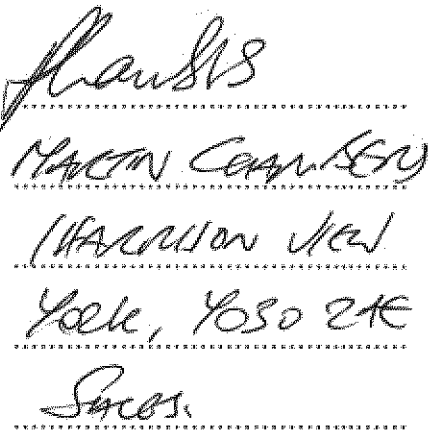 MARTIN CHAMBERS
1 HARRISON VIEW
York, YO30 2AE
SALES.